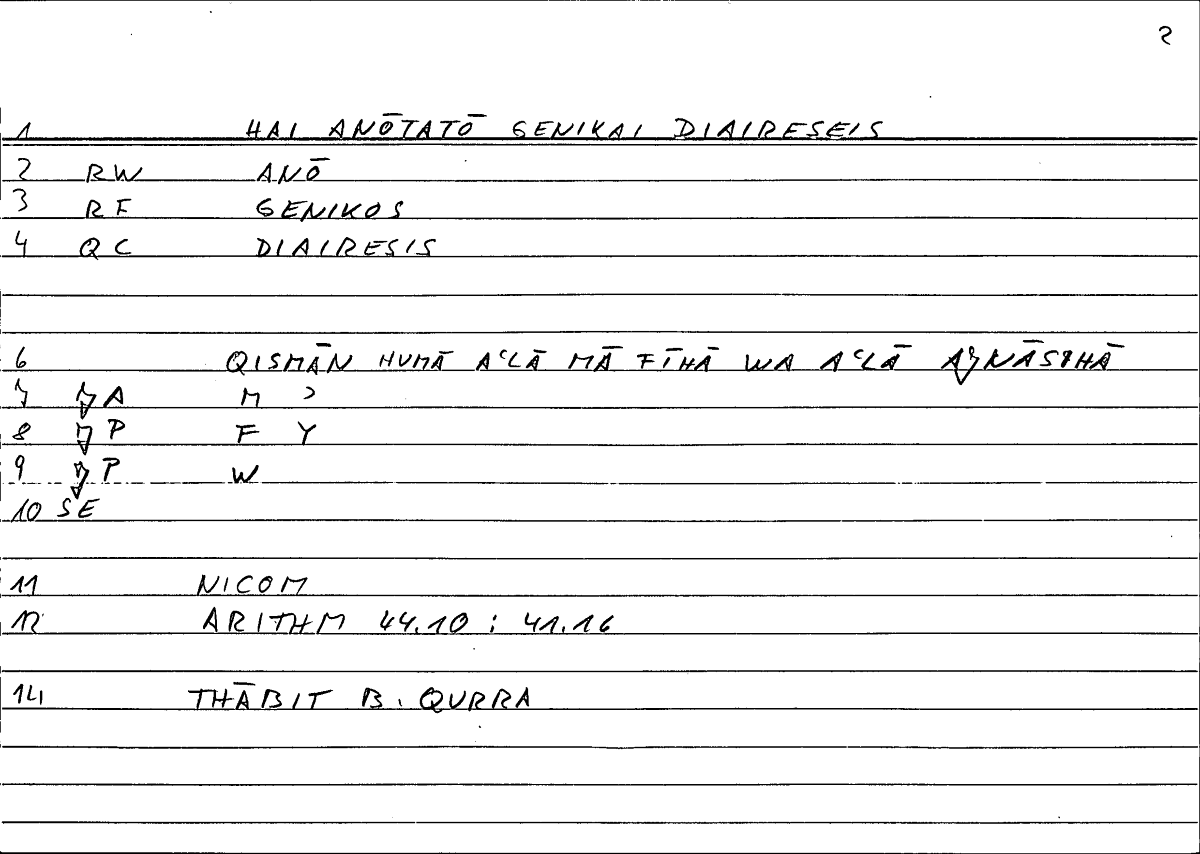 2
1 HAI ANŌTATŌ GENIKAI DIAIRESEIS
2 RW ANŌ
3 RF GENIKOS
4 QC DIAIRESIS
6 QISMĀN HUMĀ AʿLĀ MĀ FĪHĀ WA AʿLĀ AǦNĀSIHĀ
7 A M ʾ
8 P F Y
9 P W
10 SE
11 NICOM
12 ARITHM 44.10 : 41.16
14 THĀBIT B. QURRA